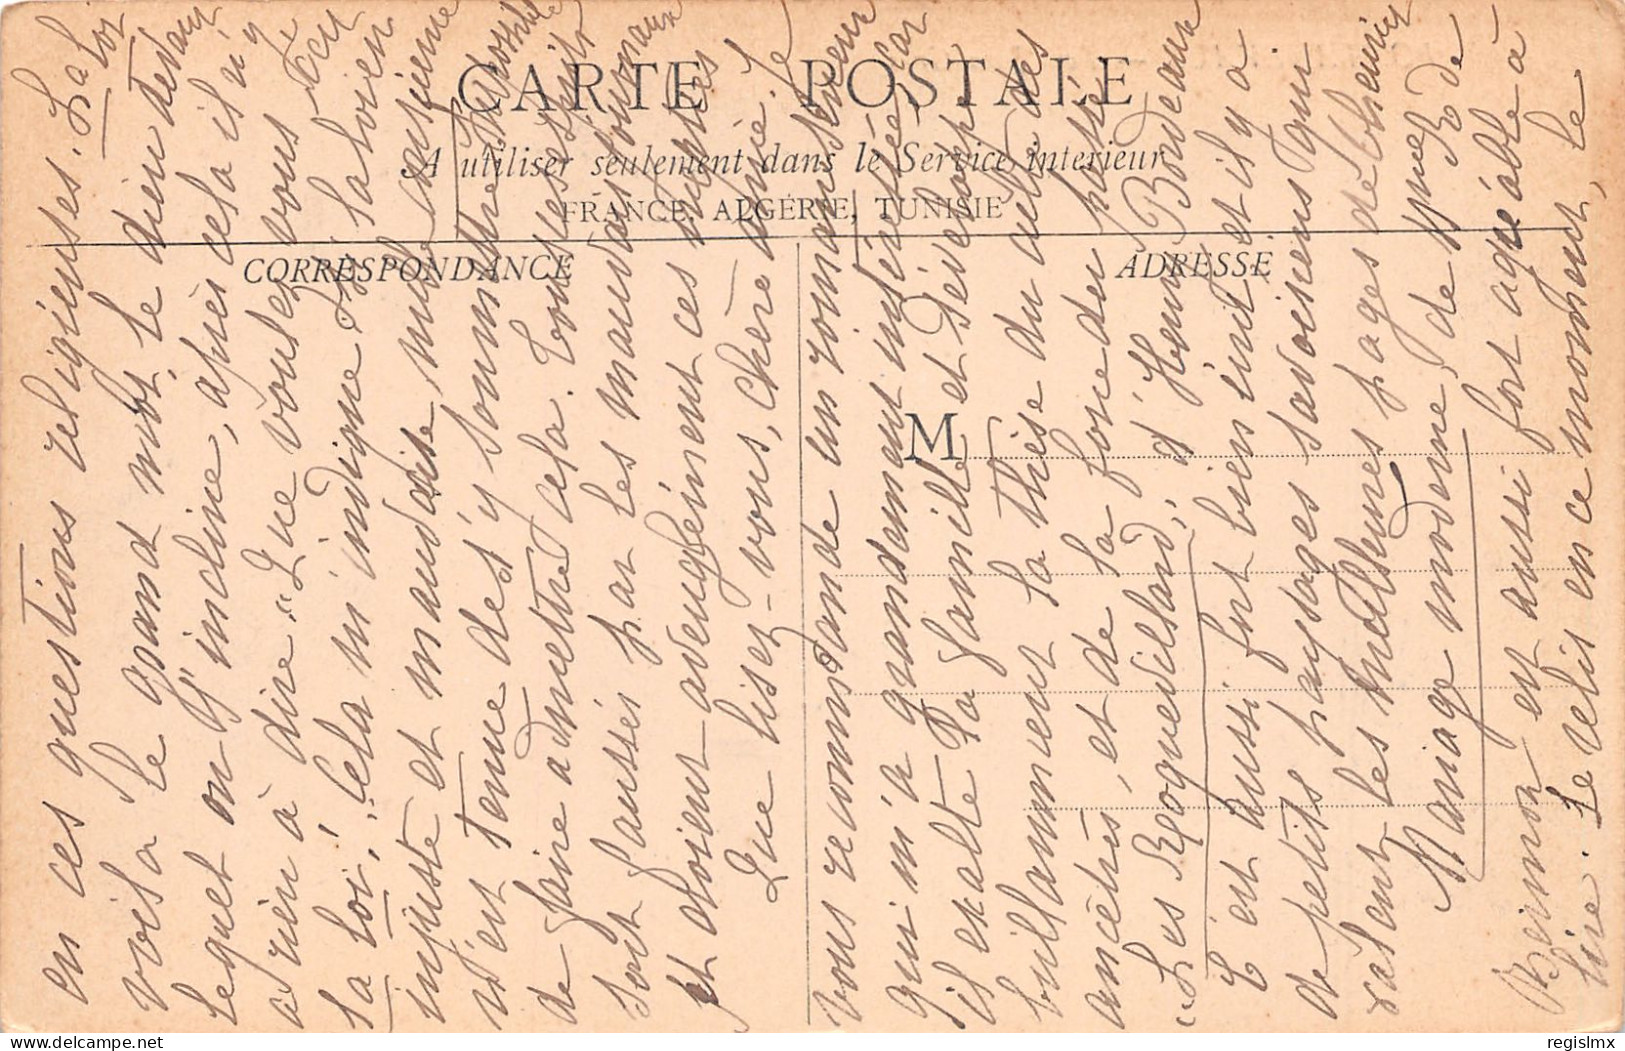 CARTE POSTALE
A utiliser seulement dans le Service intérieur
FRANCE, ALGÉRIE, TUNISIE
CORRESPONDANCE
ADRESSE
M
en ces questions religieuses. La loi
voilà le grand mot, le dieu devant
lequel on s'incline, après cela il n'y
a rien à dire. "Que voulez-vous c'est
la loi!" Cela m'indigne! La loi bien
injuste et maudite, nulle
n'est tenue de s'y soumettre. Impossible
de faire admettre cela. Tous les esprits
sont faussés par les mauvais journaux
et croient aveuglément ces
Que lisez-vous, chère amie. Je
vous recommande un roman
qui m'a grandement intéressée car
il exalte la famille et développe
brillamment la thèse du culte des
ancêtres, et de la force du passé
"Les Roquevillard", d'Henry Bordeaux
C'est aussi fort bien écrit et il y a
de petits paysages savoisiens qui
valent les meilleures pages de
Mariage moderne, de
est aussi fort agréable à
lire. Je relis en ce moment, le
regislmx